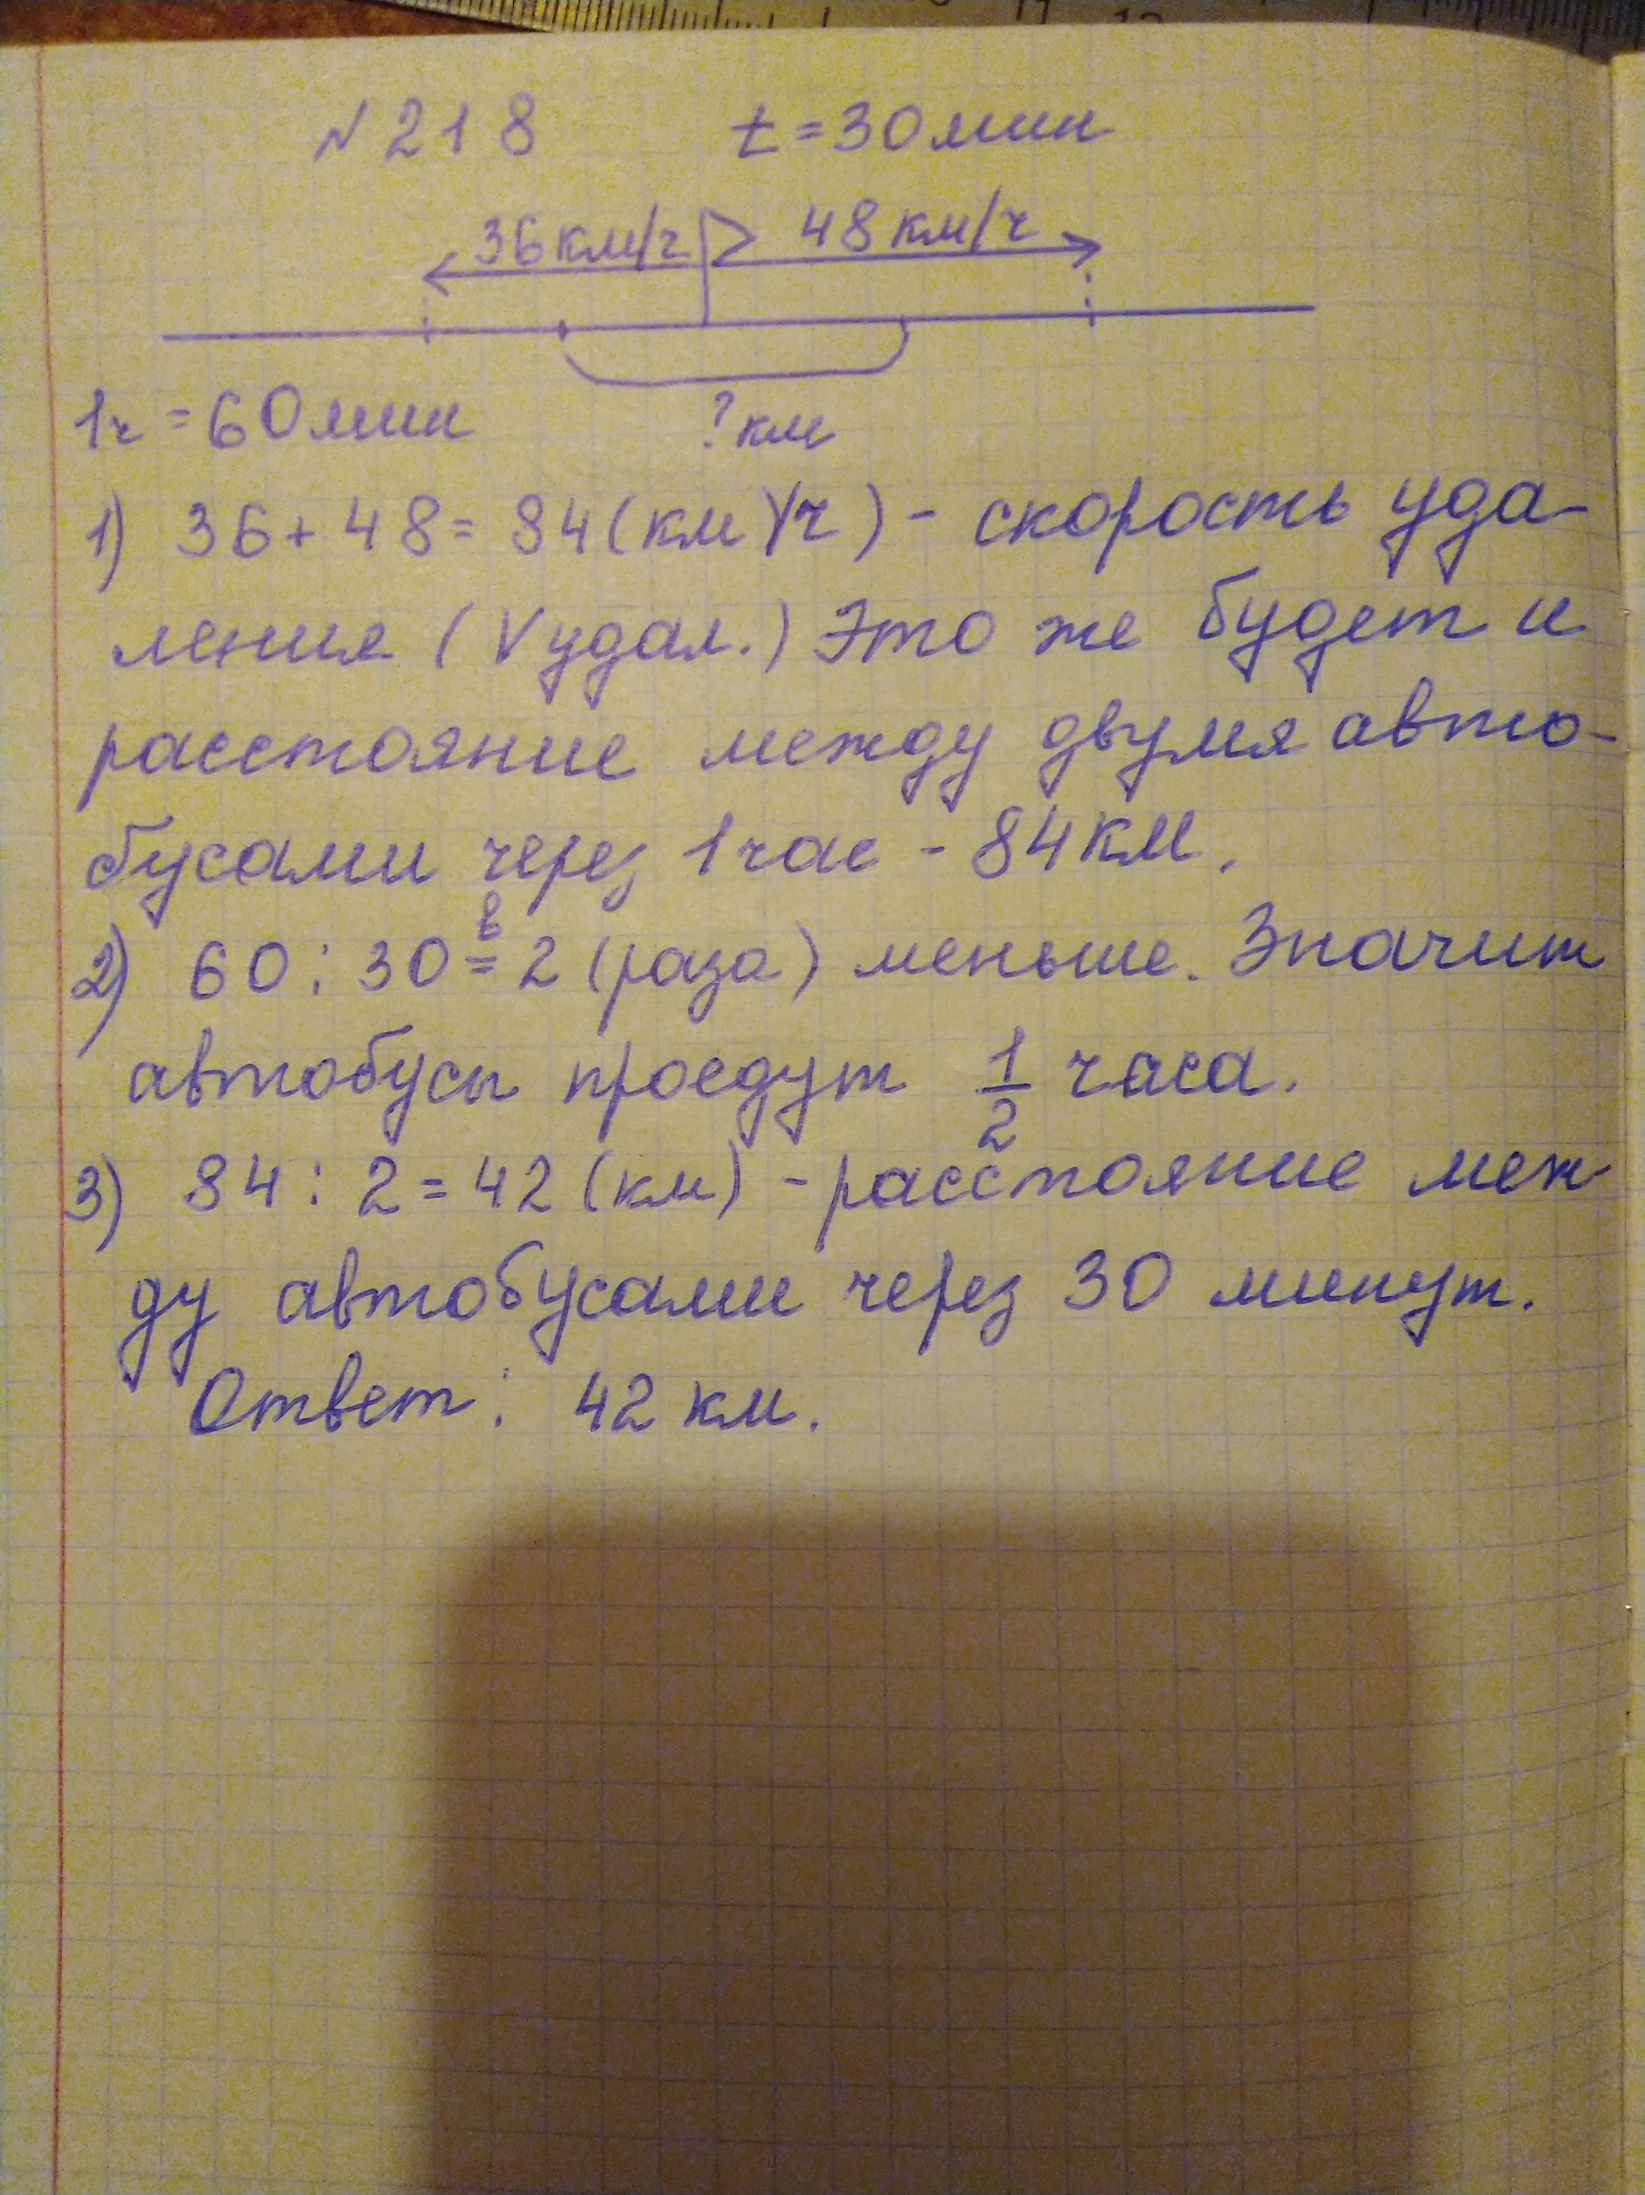 № 218 t = 30 мин
36 км/ч 48 км/ч
1ч = 60 мин ? км
1) 36 + 48 = 84 (км/ч) - скорость уда-
ления (V удал.) Это же будет и
расстояние между двумя авто-
бусами через 1 час - 84 км.
2) 60 : 30 = в 2 (раза) меньше. Значит
автобусы проедут 1/2 часа.
3) 84 : 2 = 42 (км) - расстояние меж-
ду автобусами через 30 минут.
Ответ: 42 км.